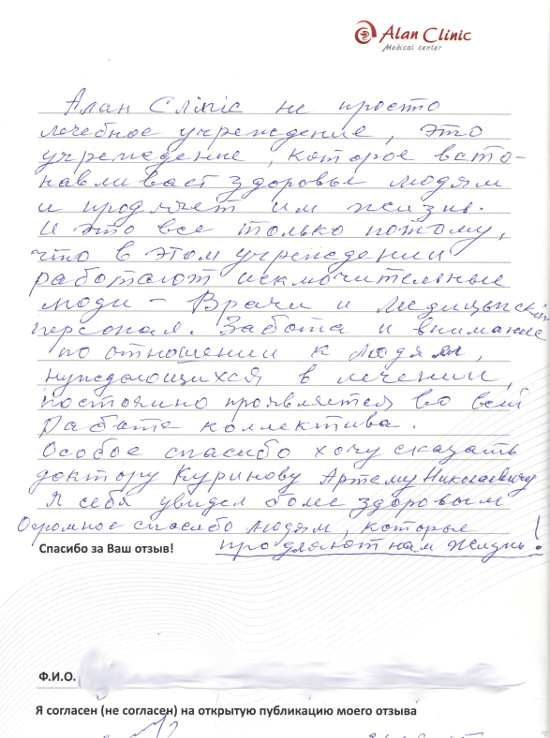 Alan Clinic
Medical center
Алан Clinic не просто
лечебное учреждение, это
учреждение, которое восто-
навливает здоровье людям
и продляет им жизнь.
И это все только потому,
что в этом учреждении
работают исключительные
люди - Врачи и Медицынский
персонал. Забота и внимание
по отношении к людям,
нуждающихся в лечении,
постоянно проявляется во всей
Работе коллектива.
Особое спасибо хочу сказать
доктору Куринову Артему Николаевичу
Я себя увидел более здоровым
Огромное спасибо людям, которые
продляют нам жизнь!
Спасибо за Ваш отзыв!
Ф.И.О.
Я согласен (не согласен) на открытую публикацию моего отзыва